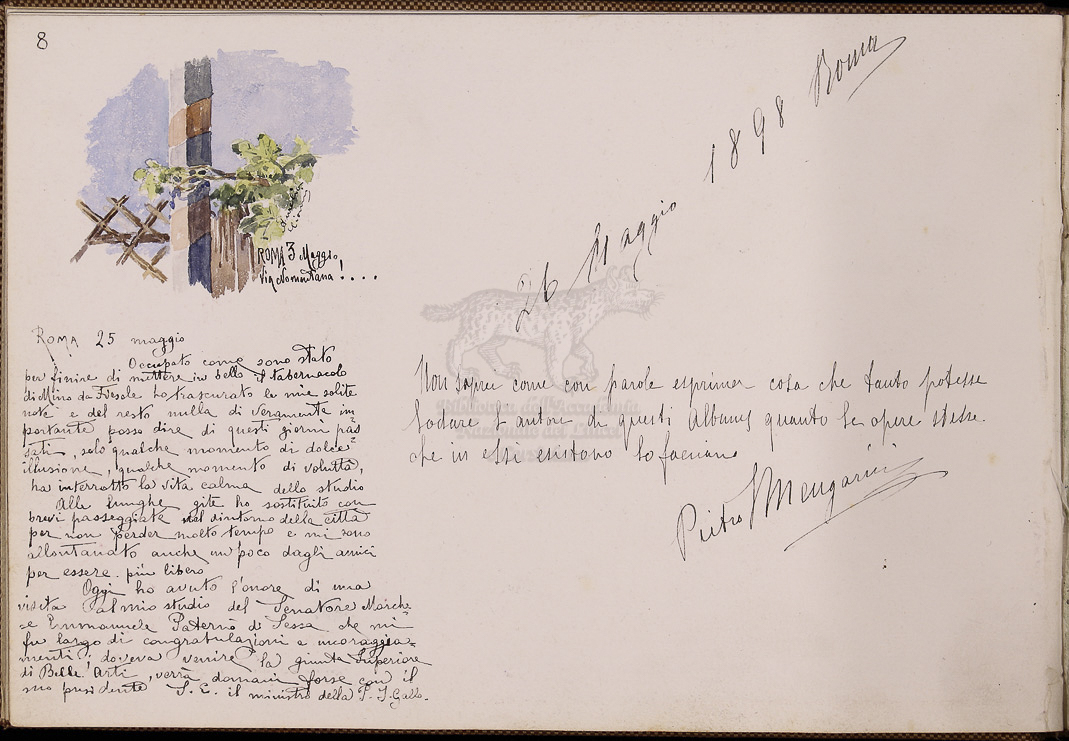 8
ROMA 3 Maggio,
Via Nomentana!....
ROMA 25 maggio
Occupato come sono stato
per finire di mettere in bello il tabernacolo
di Mino da Fiesole ho trascurato le mie solite
note e del resto nulla di veramente im
portante posso dire di questi giorni pas
sati, solo qualche momento di dolce
illusione, qualche momento di voluttà,
ha interrotto la vita calma dello studio
Alle lunghe gite ho sostituito con
brevi passeggiate nel dintorno della città
per non perder molto tempo e mi sono
allontanato anche un poco dagli amici
per essere più libero
Oggi ho avuto l'onore di una
visita al mio studio del Senatore Marche
=e Emmanuele Paternò di Sessa che mi
fu largo di congratulazioni e incoraggia=
menti; doveva venire la giunta Superiore
di Belle Arti, verrà domani forse con il
suo presidente S. E. il ministro della P. I. Gallo.
26 Maggio 1898 Roma
Non saprei come con parole esprimer cosa che tanto potesse
lodare l'autore di questi Albums quanto le opere stesse
che in essi esistono lo facciano
Pietro Mengarini
Biblioteca dell'Accademia
Nazionale dei Lincei